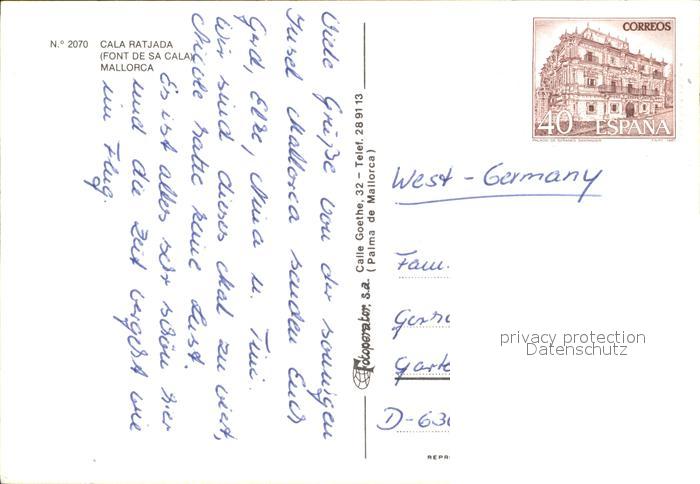 N.º 2070 CALA RATJADA
(FONT DE SA CALA)
MALLORCA
Viele Grüße von der sonnigen
Insel Mallorca senden Euch
Gerd, Elke, Nina u. Tini.
Wir sind dieses Mal zu viert,
Nicole hatte keine Lust.
Es ist alles sehr schön hier
und die Zeit vergeht wie
im Flug.
Fotoperator, s.a. Calle Goethe, 32 – Telef. 28 91 13
(Palma de Mallorca)
CORREOS
40 ESPAÑA
West - Germany
Fam.
D-630
REPR
privacy protection
Datenschutz